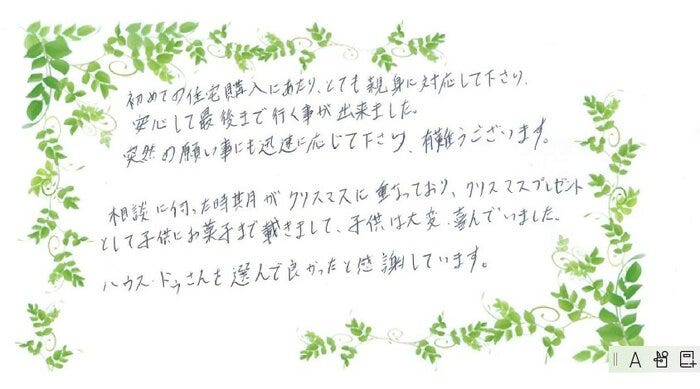 初めての住宅購入にあたり、とても親身に対応して下さり、
安心して最後まで行く事が出来ました。
突然の願い事にも迅速に応じて下さり、有難うございます。
相談に行った時期がクリスマスに重なっており、クリスマスプレゼント
として子供にお菓子まで戴きまして、子供は大変、喜んでいました。
ハウス・ドゥさんを選んで良かったと感謝しています。
A